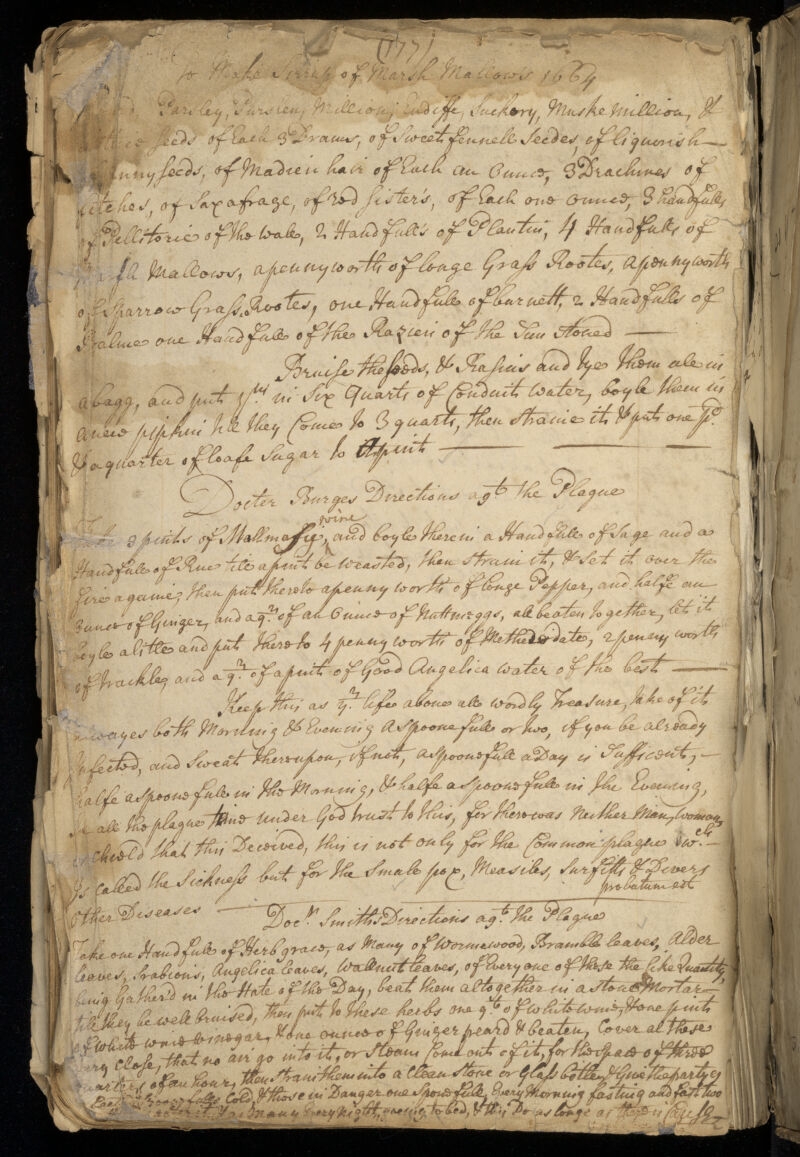 (177)
To Make Sirrup of Marsh Mallows 1664
Parsley, Purslen, Million, Endiffe, Suckory, Muske million, &
seeds of Each 3 Drams, of Sweet fennell Seedes, of liquorish
seeds, of Madien hair of Each an Ounce, 3 Drachmes of
of Saxafrage, of red sister's, of Each one ounce, 3 handfulls
of Pellitorie of the wale, 2 Handfull's of Plantin, 4 Handfulls of
Mallows, a pennyworth of longe Grass Rootes, a pennyworth
of Sparrow Grass Rootes, one Handfule of burnett, 2 Handfulls of
one Handfule of the of the Sun stoned
Bruise the seeds, & Rasins and tye them ale in
a bagg, and put ym in Six Quarts of Conduit water, boyle them in
a new pipkin till they Come to 3 quarts, then straine it, & put one
& a quarter of loafe Sugar to A pint
Docter Burges Directions agt the Plague
3 pints of wine, and boyle therein a Handfule of Sage and a
Handfule of Rue tile a pint be weasted, then strain it, & set it over the
fire againe, then put thereto a penny worth of longe Pepper, and halfe an
ounce of Ginger, and a qr of an Ounce of Nuttmeggs, all beaten together, let it
boyle a litle and put thereto 4 penny worth of Methedridate, 2 penny worth
of trackle, and a qr of a pint of Good Angelica water of the best
Keep this as yr life above ale wordly Treasure, take of it
alwayes both Morning & Evening a Spoone full or two, if you be already
Infected, and Sweat thereupon, if not, a spoonefull a Day is Sufficent,
halfe a spoone full in the Morning, & halfe a spoone full in the Evening,
In all the plague time under God trust to this, for there was neither Man, woman,
or child that this Deceived, this is not only for the Common plague wch
Is called the Sickness but for the Smale pox, Measiles, Surfitts & Divers
Other Diseases probatum est
Docr Smiths Directions agt the Plague
Take one Handfule of Herb grace, as Many of Wormewood, Bramble leaves, Alder
leaves, Angelica leaves, Wallnut leaves, of Every one of these the like Quantity,
being Gather'd in the Hate of the Day, beat them altogether in a stone Mortar
till they be well bruised, then put to these herbs one qt of white wine, & one pint
of white wine vinegar, & one ounce of Ginger peard & beaten, Cover al these
very Close, that no air go into it, or Steam Come out of it, for the space of three
quarters of an hour, then strain them into a clean stone or Glass bottle, & Give the party
Cold, & those in Danger one Spone full, Every Morning fasting and fast two
as Many Every night, going to bed, & this Do as longe as